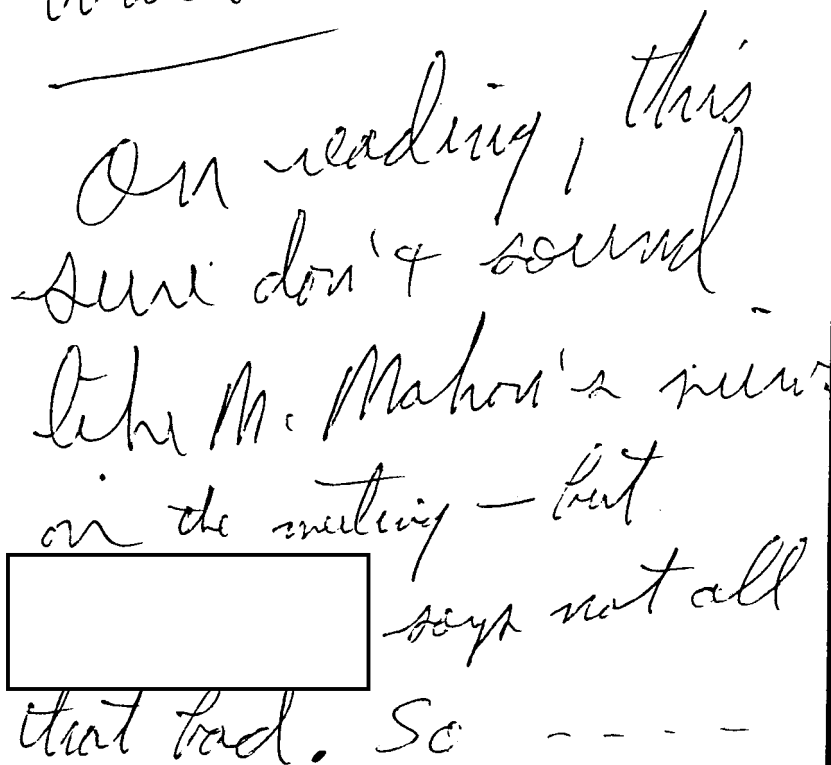 On reading, this
sure don't sound
like McMahon's
on the meeting — but
says not all
that bad. So - - - -